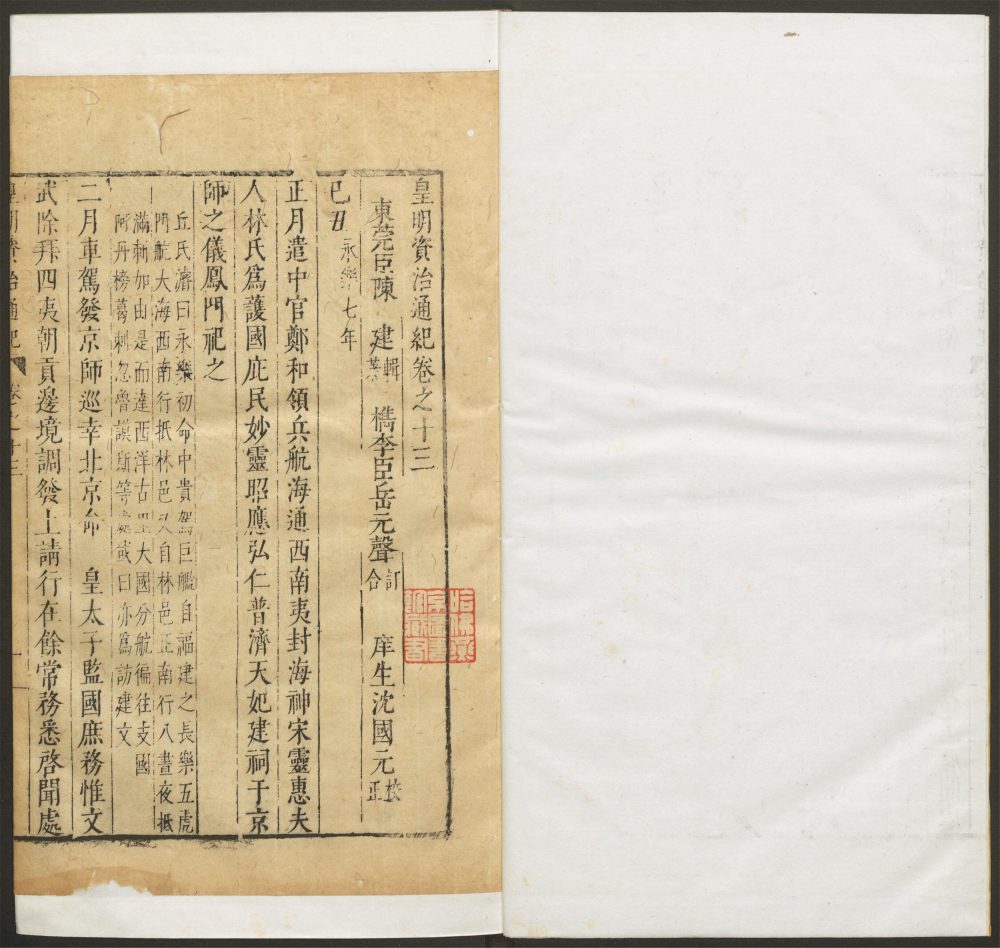 皇明資治通紀卷之十三
東莞臣陳 建輯 檇李臣岳元聲訂合 庠生沈國元校正
己丑永樂七年
正月遣中官鄭和領兵航海通西南夷封海神宋靈惠夫
人林氏爲護國庇民妙靈昭應弘仁普濟天妃建祠于京
師之儀鳳門祀之
丘氏濬曰永樂初命中貴駕巨艦自福建之長樂五虎
門航大海西南行抵林邑又自林邑正南行八晝夜抵
滿剌加由是而達西洋古里大國分航徧往支國
阿丹榜葛剌忽魯謨斯等處或曰亦爲訪建文
二月車駕發京師巡幸北京命 皇太子監國庶務惟文
武除拜四夷朝貢邊境調發上請行在餘常務悉啓聞處
皇明資治通紀 卷之十三 一
哈佛燕京圖書館